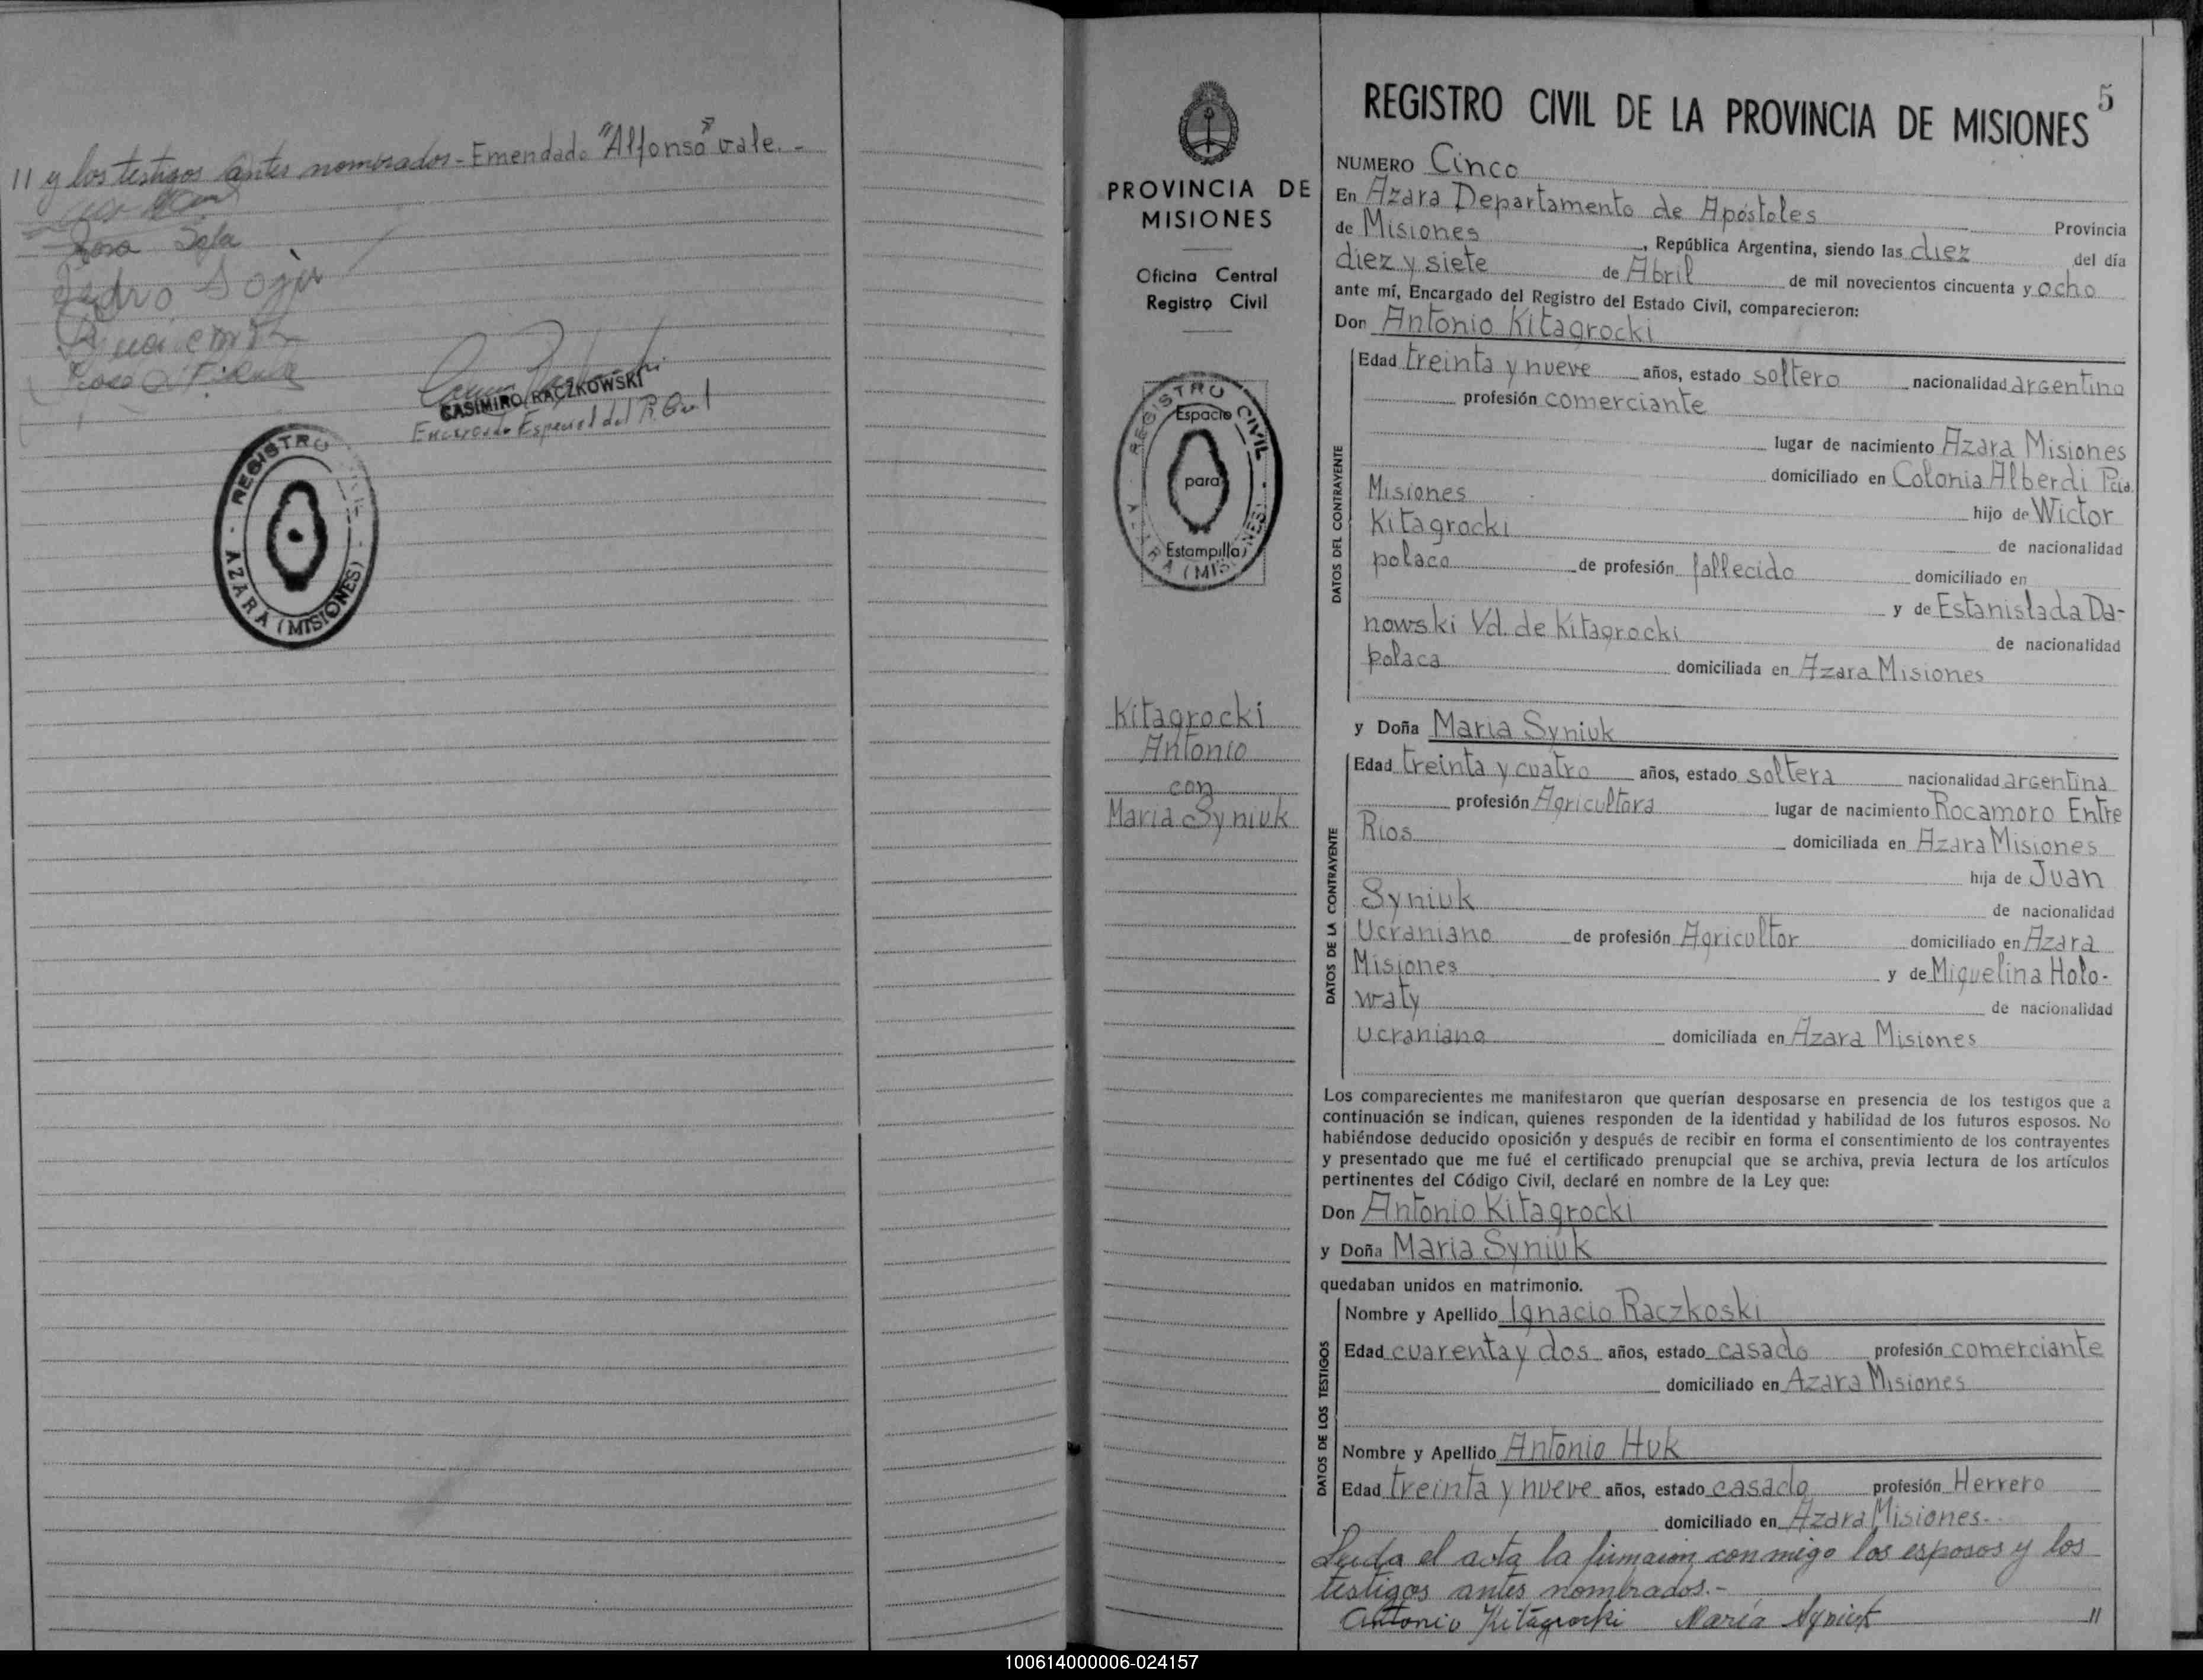 11 y los testigos antes nombrados - Emendado "Alfonso" vale. -
Rosa Soja
Pedro Soja
CASIMIRO RACZKOWSKI
Encargado Especial del R. Civil
REGISTRO CIVIL - AZARA (MISIONES)
PROVINCIA DE
MISIONES
Oficina Central
Registro Civil
REGISTRO CIVIL - AZARA (MISIONES)
Espacio
para
Estampilla
Kitagrocki
Antonio
con
Maria Syniuk
5
REGISTRO CIVIL DE LA PROVINCIA DE MISIONES
NUMERO Cinco
En Azara Departamento de Apóstoles Provincia
de Misiones, República Argentina, siendo las diez del día
diez y siete de Abril de mil novecientos cincuenta y ocho
ante mí, Encargado del Registro del Estado Civil, comparecieron:
Don Antonio Kitagrocki
DATOS DEL CONTRAYENTE
Edad treinta y nueve años, estado soltero nacionalidad argentina
profesión comerciante
lugar de nacimiento Azara Misiones
domiciliado en Colonia Alberdi Pcia.
Misiones hijo de Wictor
Kitagrocki de nacionalidad
polaco de profesión fallecido domiciliado en
y de Estanislada Da-
nowski Vd. de Kitagrocki de nacionalidad
polaca domiciliada en Azara Misiones
y Doña Maria Syniuk
DATOS DE LA CONTRAYENTE
Edad treinta y cuatro años, estado soltera nacionalidad argentina
profesión Agricultora lugar de nacimiento Rocamoro Entre
Rios domiciliada en Azara Misiones
hija de Juan
Syniuk de nacionalidad
Ucraniano de profesión Agricultor domiciliado en Azara
Misiones y de Miguelina Holo-
waty de nacionalidad
ucraniana domiciliada en Azara Misiones
Los comparecientes me manifestaron que querían desposarse en presencia de los testigos que a
continuación se indican, quienes responden de la identidad y habilidad de los futuros esposos. No
habiéndose deducido oposición y después de recibir en forma el consentimiento de los contrayentes
y presentado que me fué el certificado prenupcial que se archiva, previa lectura de los artículos
pertinentes del Código Civil, declaré en nombre de la Ley que:
Don Antonio Kitagrocki
y Doña Maria Syniuk
quedaban unidos en matrimonio.
DATOS DE LOS TESTIGOS
Nombre y Apellido Ignacio Raczkoski
Edad cuarenta y dos años, estado casado profesión comerciante
domiciliado en Azara Misiones
Nombre y Apellido Antonio Huk
Edad treinta y nueve años, estado casado profesión Herrero
domiciliado en Azara Misiones.
Leida el acta la firmaron conmigo los esposos y los
testigos antes nombrados.-
Antonio Kitagrocki Maria Syniuk 11
100614000006-024157